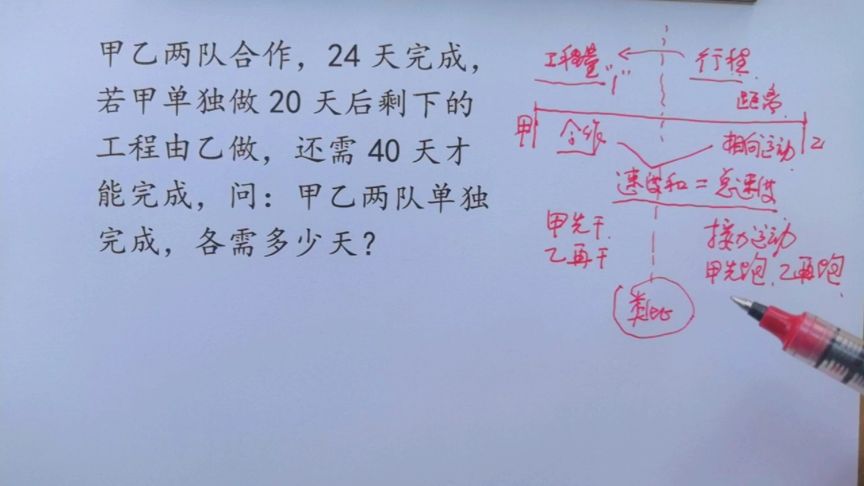 甲乙两队合作，24天完成，
若甲单独做20天后剩下的
工程由乙做，还需40天才
能完成，问：甲乙两队单独
完成，各需多少天？
工程量"1" ← 行程
距离
甲 合作 相向运动 乙
速度和=总速度
甲先干 接力运动
乙再干 甲先跑，乙再跑
类比